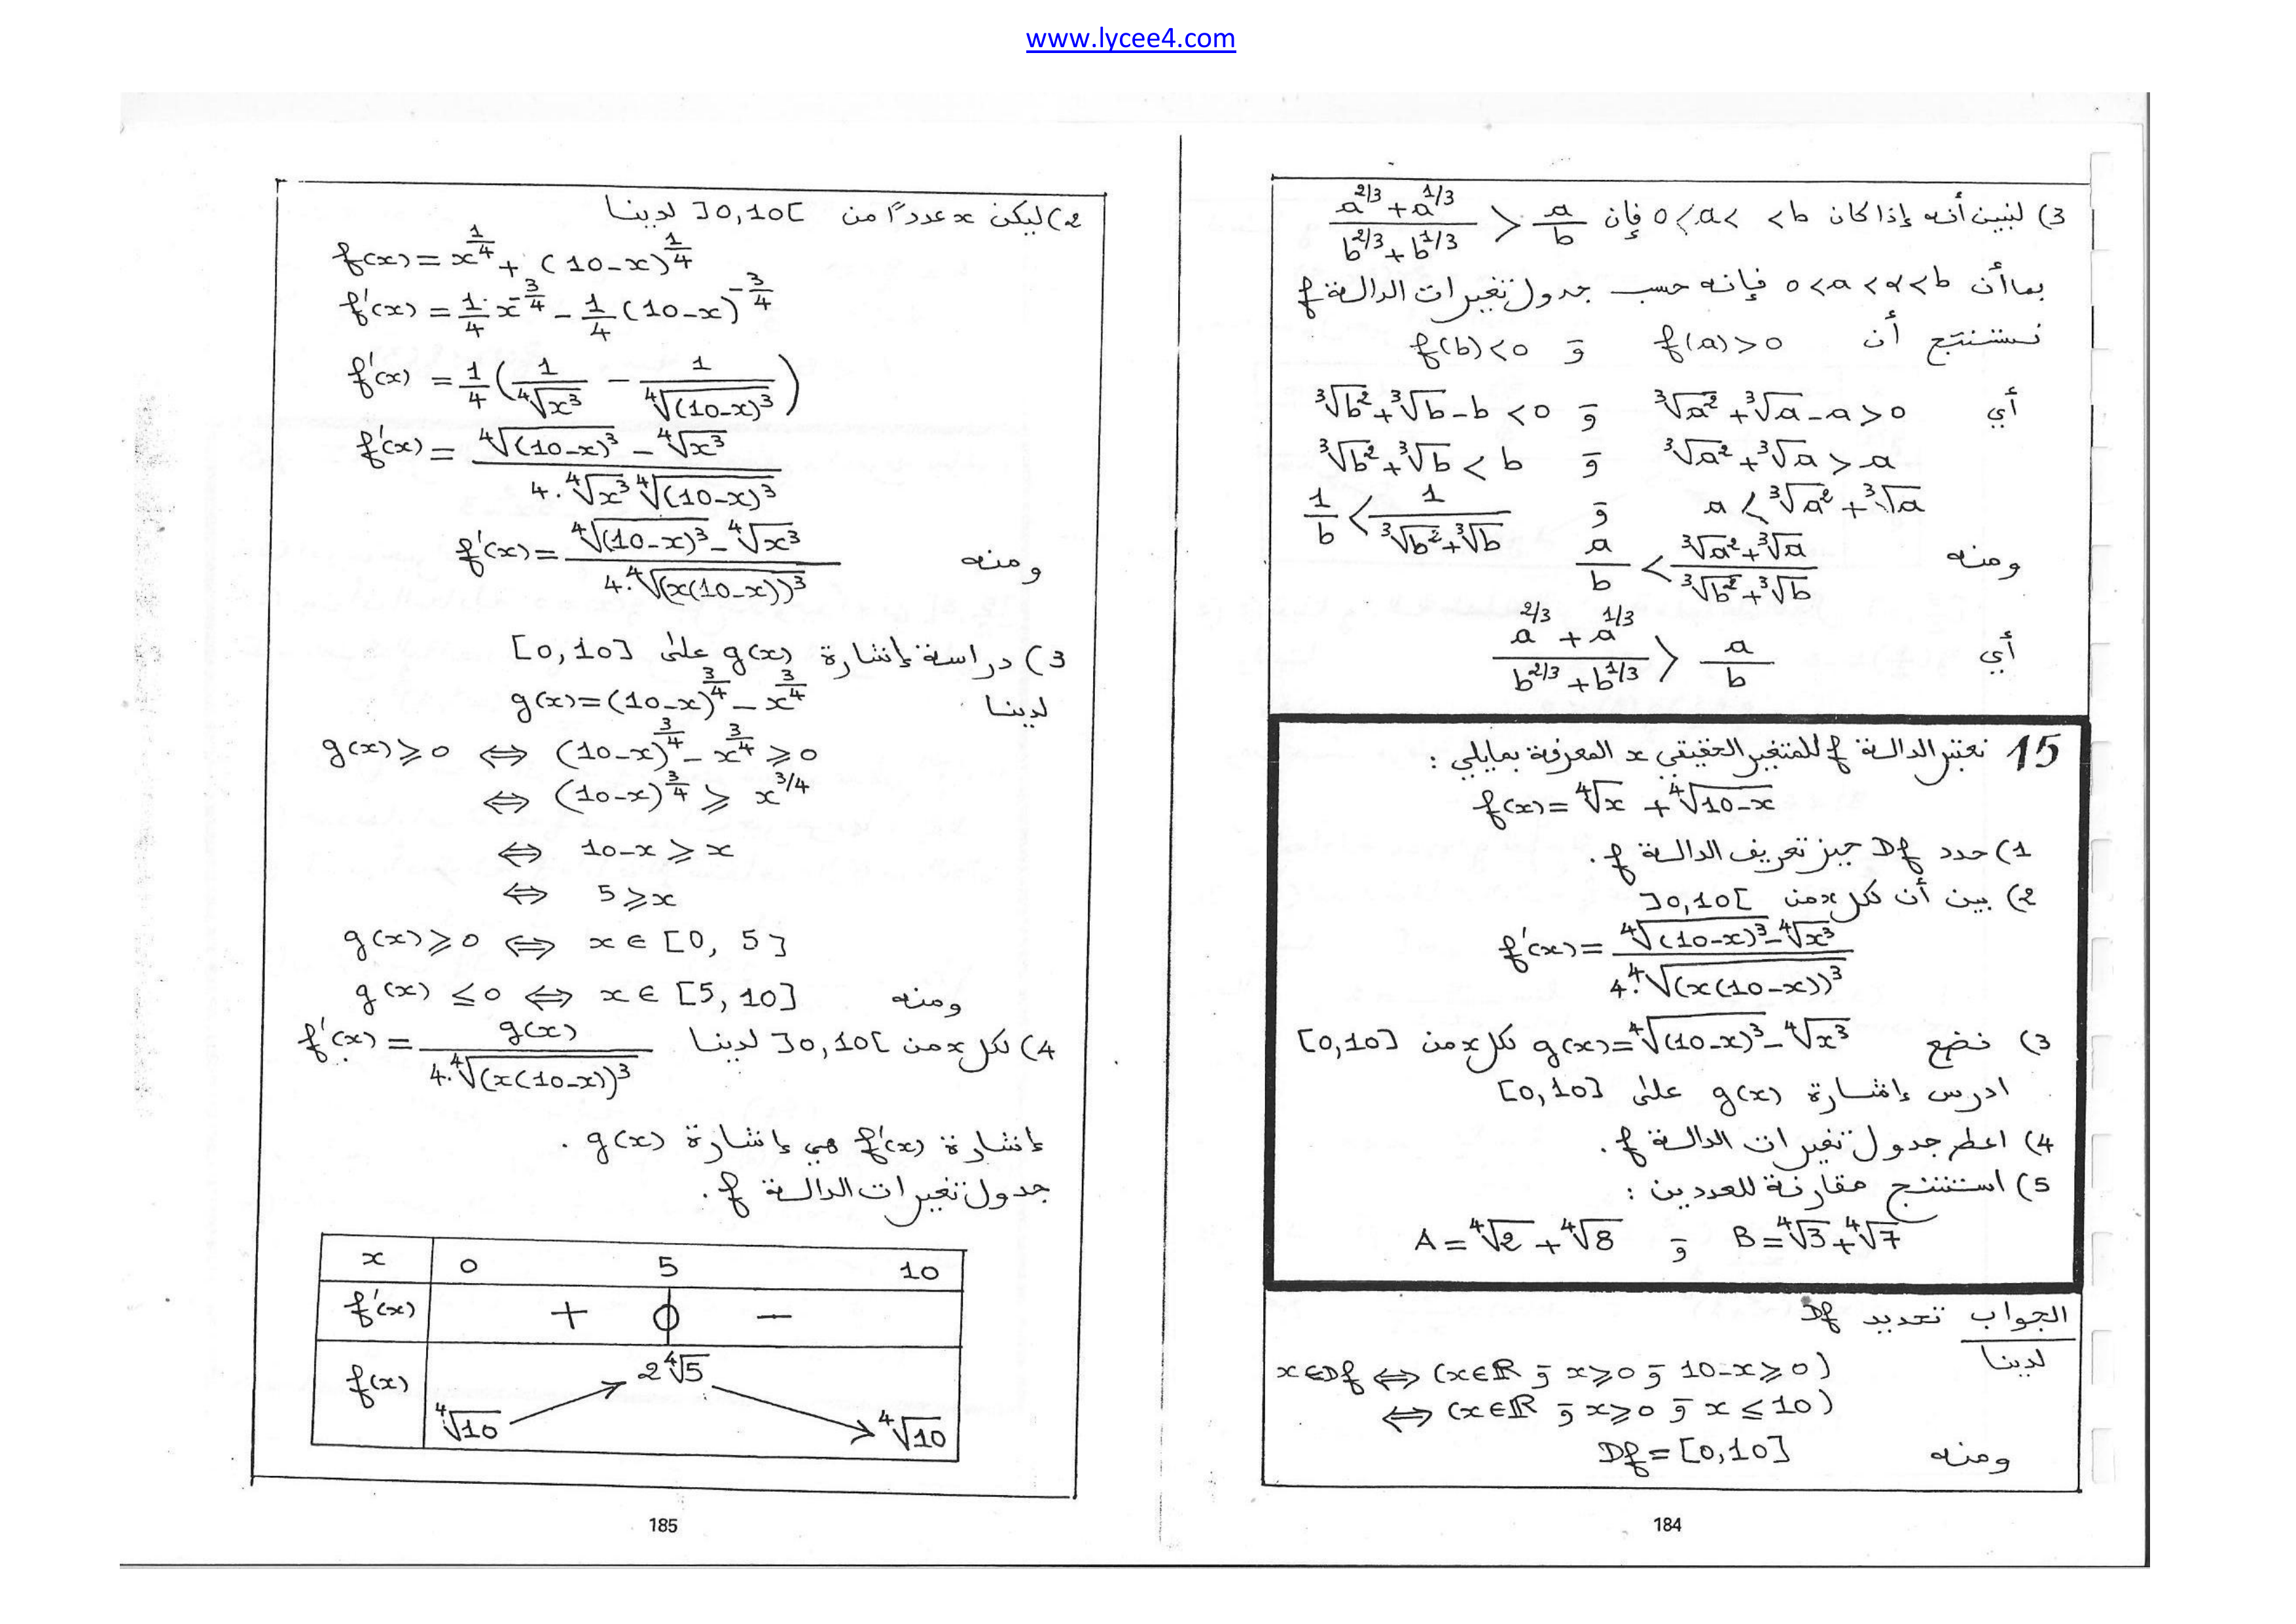 www.lycee4.com
3) لنبين أنه إذا كان 0<a<α<b فإن (a^{2/3}+a^{1/3})/(b^{2/3}+b^{1/3}) > a/b
بما أن 0<a<α<b فإنه حسب جدول تغيرات الدالة f
نستنتج أن f(a)>0 و f(b)<0
أي ∛a²+∛a-a>0 و ∛b²+∛b-b<0
∛a²+∛a>a و ∛b²+∛b<b
a<∛a²+∛a و 1/b<1/(∛b²+∛b)
ومنه a/b<(∛a²+∛a)/(∛b²+∛b)
أي (a^{2/3}+a^{1/3})/(b^{2/3}+b^{1/3}) > a/b
15 نعتبر الدالة f للمتغير الحقيقي x المعرفة بمايلي :
f(x)=∜x+∜(10-x)
1) حدد Df حيز تعريف الدالة f.
2) بين أن لكل x من ]0,10[
f'(x)=(∜(10-x)³-∜x³)/(4.∜(x(10-x))³)
3) نضع g(x)=∜(10-x)³-∜x³ لكل x من [0,10]
ادرس إشارة g(x) على [0,10]
4) اعط جدول تغيرات الدالة f.
5) استنتج مقارنة للعددين :
A=∜2+∜8 و B=∜3+∜7
الجواب تحديد Df
لدينا
x∈Df ⇔ (x∈ℝ و x⩾0 و 10-x⩾0)
⇔ (x∈ℝ و x⩾0 و x≤10)
ومنه Df=[0,10]
184
2) ليكن x عددًا من ]0,10[ لدينا
f(x)=x^{1/4}+(10-x)^{1/4}
f'(x)=1/4 x^{-3/4}-1/4(10-x)^{-3/4}
f'(x)=1/4(1/∜x³-1/∜(10-x)³)
f'(x)=(∜(10-x)³-∜x³)/(4.∜x³∜(10-x)³)
ومنه f'(x)=(∜(10-x)³-∜x³)/(4.∜(x(10-x))³)
3) دراسة إشارة g(x) على [0,10]
لدينا g(x)=(10-x)^{3/4}-x^{3/4}
g(x)⩾0 ⇔ (10-x)^{3/4}-x^{3/4}⩾0
⇔ (10-x)^{3/4}⩾x^{3/4}
⇔ 10-x⩾x
⇔ 5⩾x
g(x)⩾0 ⇔ x∈[0,5]
ومنه g(x)≤0 ⇔ x∈[5,10]
4) لكل x من ]0,10[ لدينا f'(x)=g(x)/(4.∜(x(10-x))³)
إشارة f'(x) هي إشارة g(x).
جدول تغيرات الدالة f.
x 0 5 10
f'(x) + 0 -
f(x) ∜10 2∜5 ∜10
185